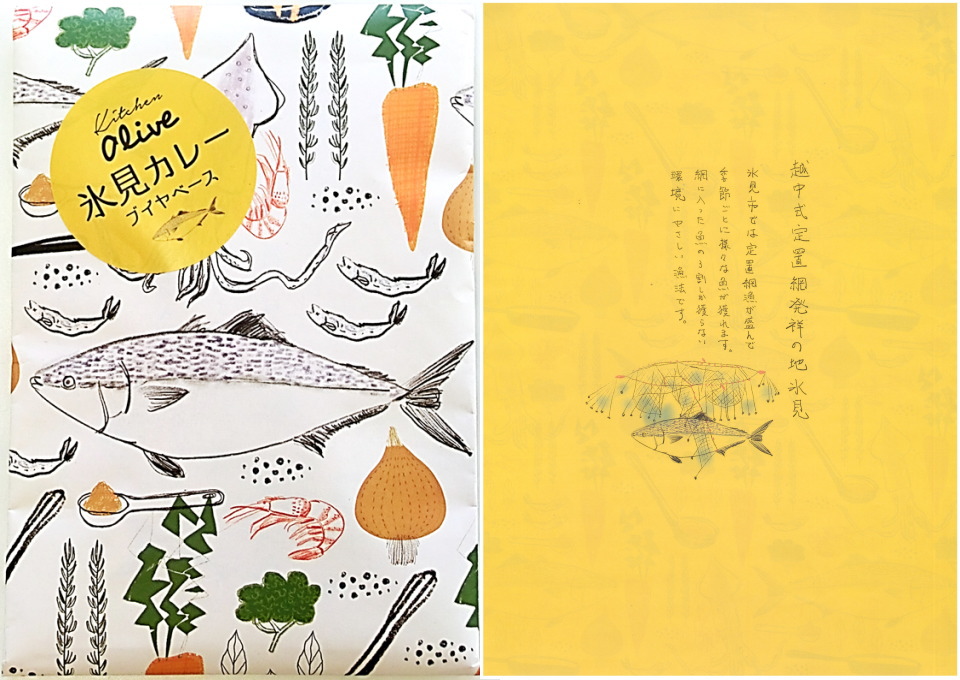 Kitchen
Olive
氷見カレー
ブイヤベース
越中式定置網発祥の地氷見
氷見市では定置網漁が盛んで
季節ごとに様々な魚が獲れます。
網に入った魚の3割しか獲らない
環境にやさしい漁法です。